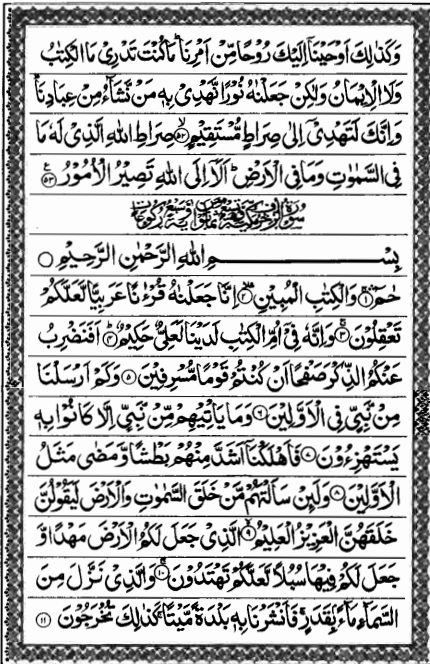 وَكَذٰلِكَ اَوْحَيْنَاۤ اِلَيْكَ رُوْحًا مِّنْ اَمْرِنَا ؕ مَا كُنْتَ تَدْرِىْ مَا الْكِتٰبُ
وَلَا الْاِيْمَانُ وَلٰكِنْ جَعَلْنٰهُ نُوْرًا نَّهْدِىْ بِهٖ مَنْ نَّشَآءُ مِنْ عِبَادِنَا ؕ
وَاِنَّكَ لَتَهْدِىْۤ اِلٰى صِرَاطٍ مُّسْتَقِيْمٍ ۙ۵۲ صِرَاطِ اللّٰهِ الَّذِىْ لَهٗ مَا
فِى السَّمٰوٰتِ وَمَا فِى الْاَرْضِ ؕ اَلَاۤ اِلَى اللّٰهِ تَصِيْرُ الْاُمُوْرُ ۵۳ ع
بِسْمِ اللّٰهِ الرَّحْمٰنِ الرَّحِيْمِ
حٰمٓ ۚ۱ وَالْكِتٰبِ الْمُبِيْنِ ۙ۲ اِنَّا جَعَلْنٰهُ قُرْءٰنًا عَرَبِيًّا لَّعَلَّكُمْ
تَعْقِلُوْنَ ۚ۳ وَاِنَّهٗ فِىْۤ اُمِّ الْكِتٰبِ لَدَيْنَا لَعَلِىٌّ حَكِيْمٌ ؕ۴ اَفَنَضْرِبُ
عَنْكُمُ الذِّكْرَ صَفْحًا اَنْ كُنْتُمْ قَوْمًا مُّسْرِفِيْنَ ۵ وَكَمْ اَرْسَلْنَا
مِنْ نَّبِىٍّ فِى الْاَوَّلِيْنَ ۶ وَمَا يَاْتِيْهِمْ مِّنْ نَّبِىٍّ اِلَّا كَانُوْا بِهٖ
يَسْتَهْزِءُوْنَ ۷ فَاَهْلَكْنَاۤ اَشَدَّ مِنْهُمْ بَطْشًا وَّمَضٰى مَثَلُ
الْاَوَّلِيْنَ ۸ وَلَئِنْ سَاَلْتَهُمْ مَّنْ خَلَقَ السَّمٰوٰتِ وَالْاَرْضَ لَيَقُوْلُنَّ
خَلَقَهُنَّ الْعَزِيْزُ الْعَلِيْمُ ۙ۹ الَّذِىْ جَعَلَ لَكُمُ الْاَرْضَ مَهْدًا وَّ
جَعَلَ لَكُمْ فِيْهَا سُبُلًا لَّعَلَّكُمْ تَهْتَدُوْنَ ۚ۱۰ وَالَّذِىْ نَزَّلَ مِنَ
السَّمَآءِ مَآءً بِقَدَرٍ ۚ فَاَنْشَرْنَا بِهٖ بَلْدَةً مَّيْتًا ۚ كَذٰلِكَ تُخْرَجُوْنَ ۱۱